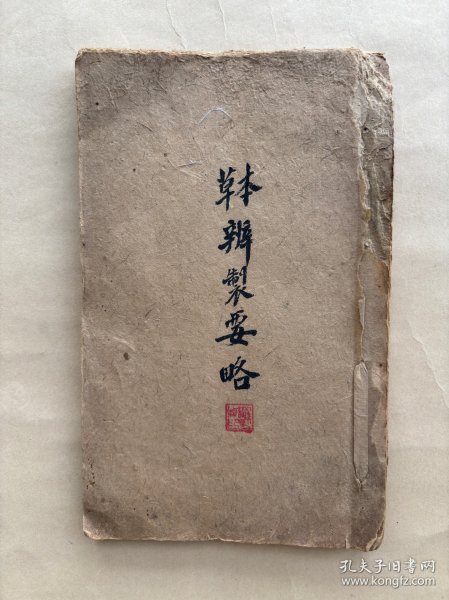 本草辨製要略
孔夫子旧书网
www.kongfz.com